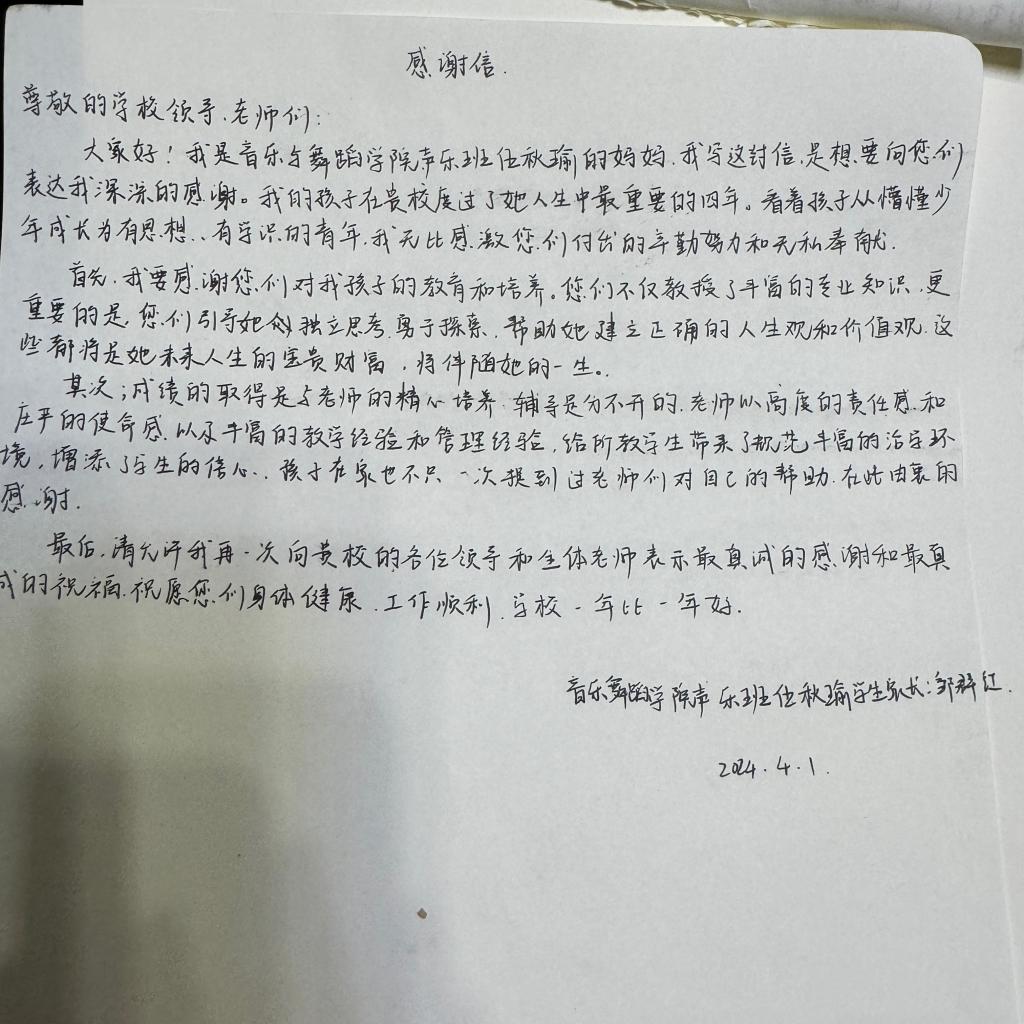 感谢信.
尊敬的学校领导、老师们:
大家好!我是音乐与舞蹈学院声乐班伍秋瑜的妈妈,我写这封信,是想要向您们
表达我深深的感谢。我的孩子在贵校度过了她人生中最重要的四年。看着孩子从懵懂少
年成长为有思想、有学识的青年,我无比感激您们付出的辛勤努力和无私奉献.
首先,我要感谢您们对我孩子的教育和培养。您们不仅教授了丰富的专业知识,更
重要的是,您们引导她独立思考,勇于探索,帮助她建立正确的人生观和价值观,这
些都将是她未来人生的宝贵财富,将伴随她的一生。
其次;成绩的取得是与老师的精心培养、辅导是分不开的,老师以高度的责任感和
庄严的使命感,以及丰富的教学经验和管理经验,给所教学生带来了规范丰富的治学环
境,增添了学生的信心,孩子在家也不只一次提到过老师们对自己的帮助,在此由衷的
感谢.
最后,请允许我再一次向贵校的各位领导和全体老师表示最真诚的感谢和最真
诚的祝福,祝愿您们身体健康,工作顺利,学校一年比一年好.
音乐舞蹈学院声乐班伍秋瑜学生家长:邹红.
2024.4.1.